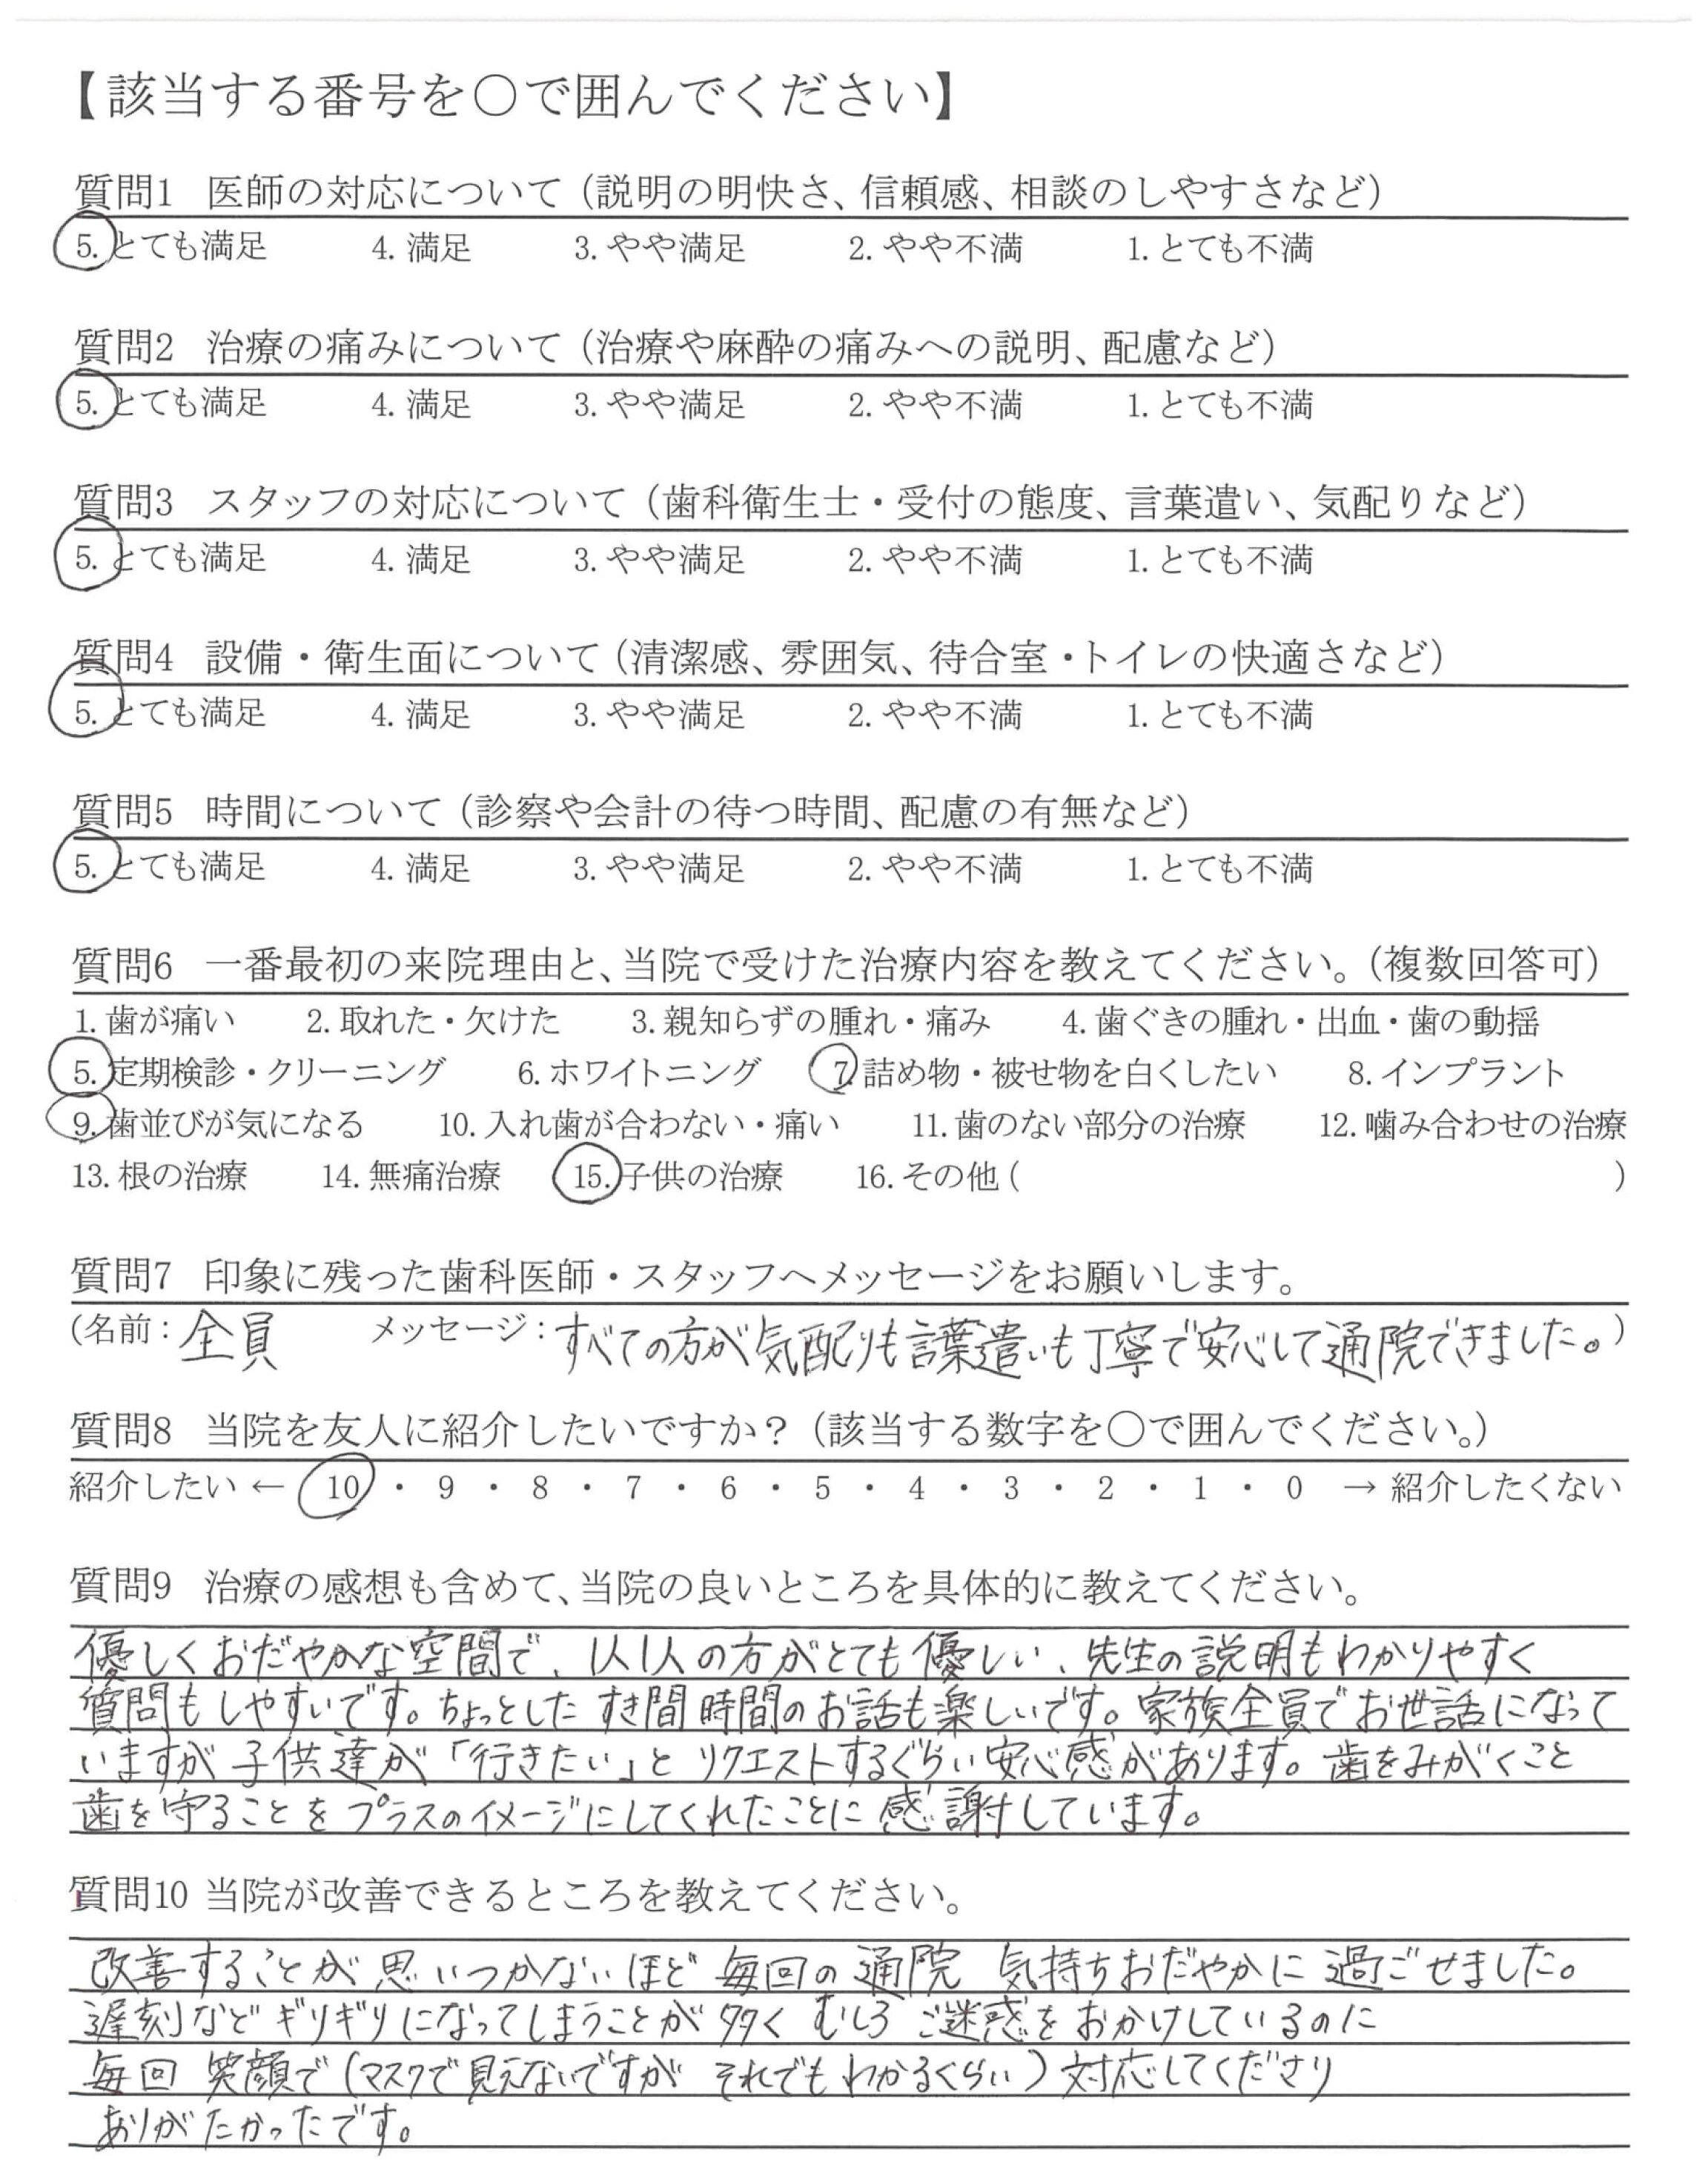 【該当する番号を〇で囲んでください】
質問1 医師の対応について（説明の明快さ、信頼感、相談のしやすさなど）
5. とても満足 4. 満足 3. やや満足 2. やや不満 1. とても不満
質問2 治療の痛みについて（治療や麻酔の痛みへの説明、配慮など）
5. とても満足 4. 満足 3. やや満足 2. やや不満 1. とても不満
質問3 スタッフの対応について（歯科衛生士・受付の態度、言葉遣い、気配りなど）
5. とても満足 4. 満足 3. やや満足 2. やや不満 1. とても不満
質問4 設備・衛生面について（清潔感、雰囲気、待合室・トイレの快適さなど）
5. とても満足 4. 満足 3. やや満足 2. やや不満 1. とても不満
質問5 時間について（診察や会計の待つ時間、配慮の有無など）
5. とても満足 4. 満足 3. やや満足 2. やや不満 1. とても不満
質問6 一番最初の来院理由と、当院で受けた治療内容を教えてください。（複数回答可）
1. 歯が痛い 2. 取れた・欠けた 3. 親知らずの腫れ・痛み 4. 歯ぐきの腫れ・出血・歯の動揺
5. 定期検診・クリーニング 6. ホワイトニング 7. 詰め物・被せ物を白くしたい 8. インプラント
9. 歯並びが気になる 10. 入れ歯が合わない・痛い 11. 歯のない部分の治療 12. 噛み合わせの治療
13. 根の治療 14. 無痛治療 15. 子供の治療 16. その他（ ）
質問7 印象に残った歯科医師・スタッフへメッセージをお願いします。
（名前：全員 メッセージ：すべての方が気配りも言葉遣いも丁寧で安心して通院できました。）
質問8 当院を友人に紹介したいですか？（該当する数字を〇で囲んでください。）
紹介したい ← 10 ・ 9 ・ 8 ・ 7 ・ 6 ・ 5 ・ 4 ・ 3 ・ 2 ・ 1 ・ 0 → 紹介したくない
質問9 治療の感想も含めて、当院の良いところを具体的に教えてください。
優しくおだやかな空間で、1人1人の方がとても優しい、先生の説明もわかりやすく
質問もしやすいです。ちょっとしたすき間時間のお話も楽しいです。家族全員でお世話になって
いますが子供達が「行きたい」とリクエストするぐらい安心感があります。歯をみがくこと
歯を守ることをプラスのイメージにしてくれたことに感謝しています。
質問10 当院が改善できるところを教えてください。
改善することが思いつかないほど毎回の通院 気持ちおだやかに過ごせました。
遅刻などギリギリになってしまうことが多くむしろご迷惑をおかけしているのに
毎回 笑顔で（マスクで見えないですが それでもわかるくらい）対応してくださり
ありがたかったです。